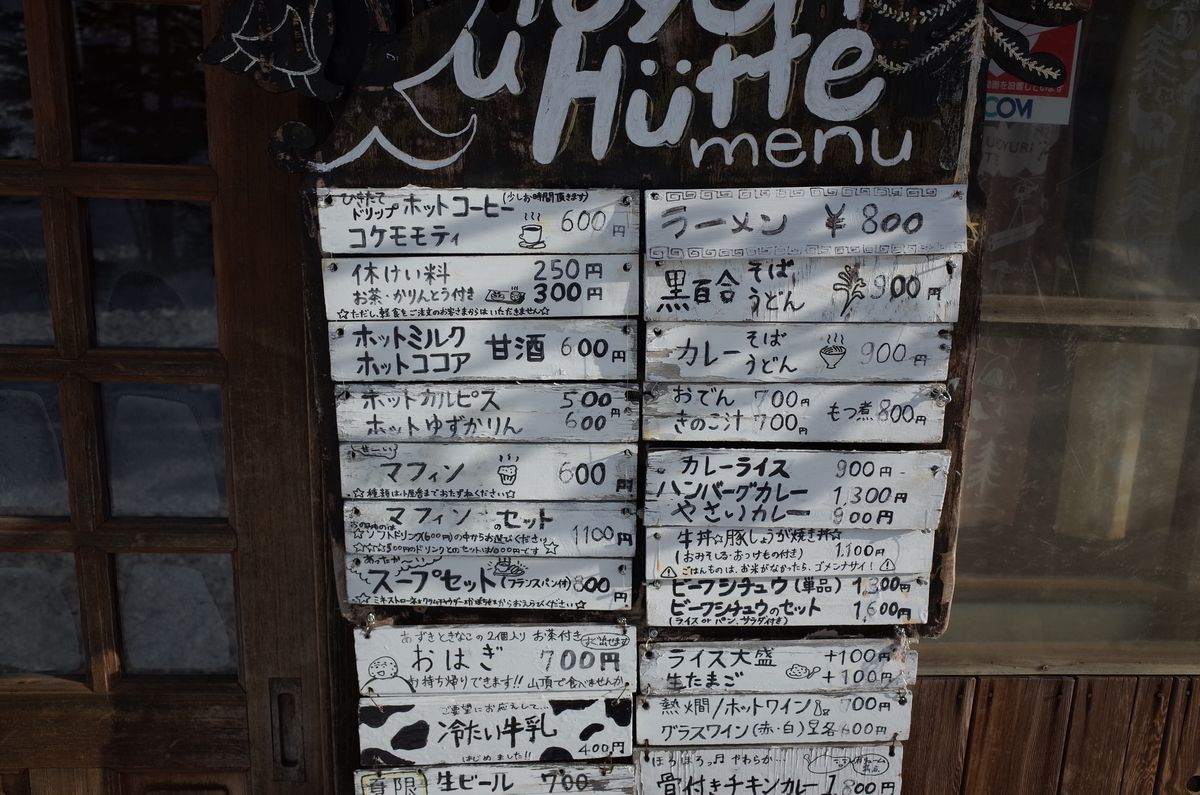 Hütte
menu
ひきたて (少しお時間頂きます)
ドリップホットコーヒー 600円
コケモモティ
休けい料 250円
お茶・かりんとう付き 300円
☆ただし、軽食をご注文のお客さまからはいただきません☆
ホットミルク 甘酒 600円
ホットココア
ホットカルピス 500円
ホットゆずかりん 600
マフィン 600
☆種類は小屋番までおたずねください☆
マフィンのセット 1100円
☆ソフトドリンク(600円)の中からお選びください
☆☆☆500円のドリンクとのセットは1000円です☆
あったか
スープセット (フランスパン付) 800円
あずきときなこの2個入り お茶付き
おはぎ 700円
お持ち帰りできます!! 山頂で食べませんか
ご要望にお応えして...
冷たい牛乳
はじめました!! 400円
生ビール 700
ラーメン ¥800
黒百合 そば うどん 900円
カレー そば うどん 900円
おでん 700円 もつ煮 800円
きのこ汁 700円
カレーライス 900円
ハンバーグカレー 1,300円
やさいカレー 900円
牛丼☆豚しょうが焼き丼☆
(おみそしる・おつけもの付き) 1,100円
ごはんものは、お米がなかったら、ゴメンナサイ!
ビーフシチュウ(単品) 1,300円
ビーフシチュウのセット 1,600円
(ライス or パン、サラダ付き)
ライス大盛 +100円
生たまご +100円
熱燗/ホットワイン 700円
グラスワイン(赤・白) 各600円
ほろほろっ やわらか...
骨付きチキンカレー 1,800円
COM